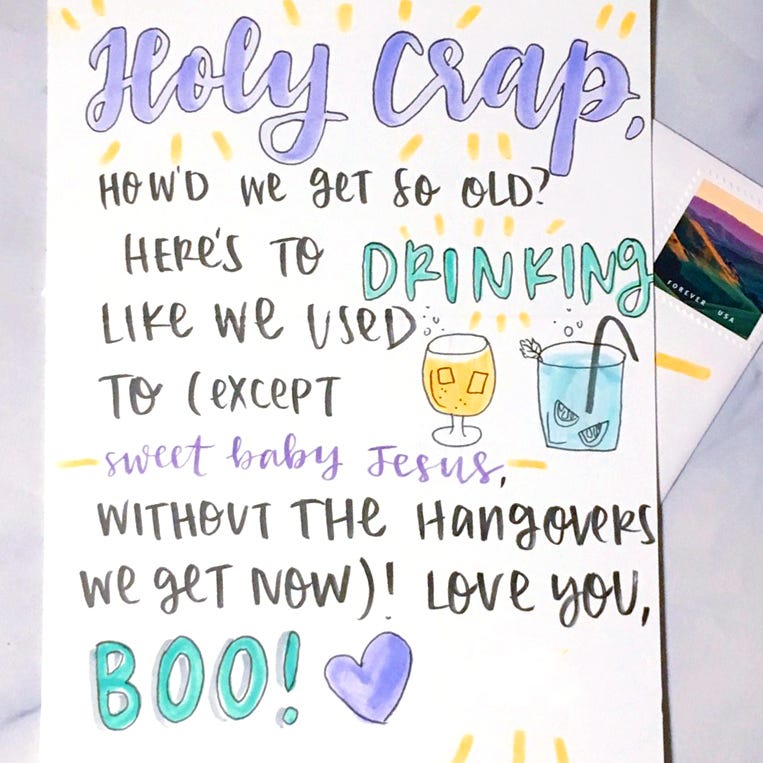 Holy Crap,
HOW'D WE GET SO OLD?
HERE'S TO DRINKING
LIKE WE USED
TO (EXCEPT
sweet baby Jesus,
WITHOUT THE HANGOVERS
WE GET NOW)! LOVE YOU,
BOO!
FOREVER USA